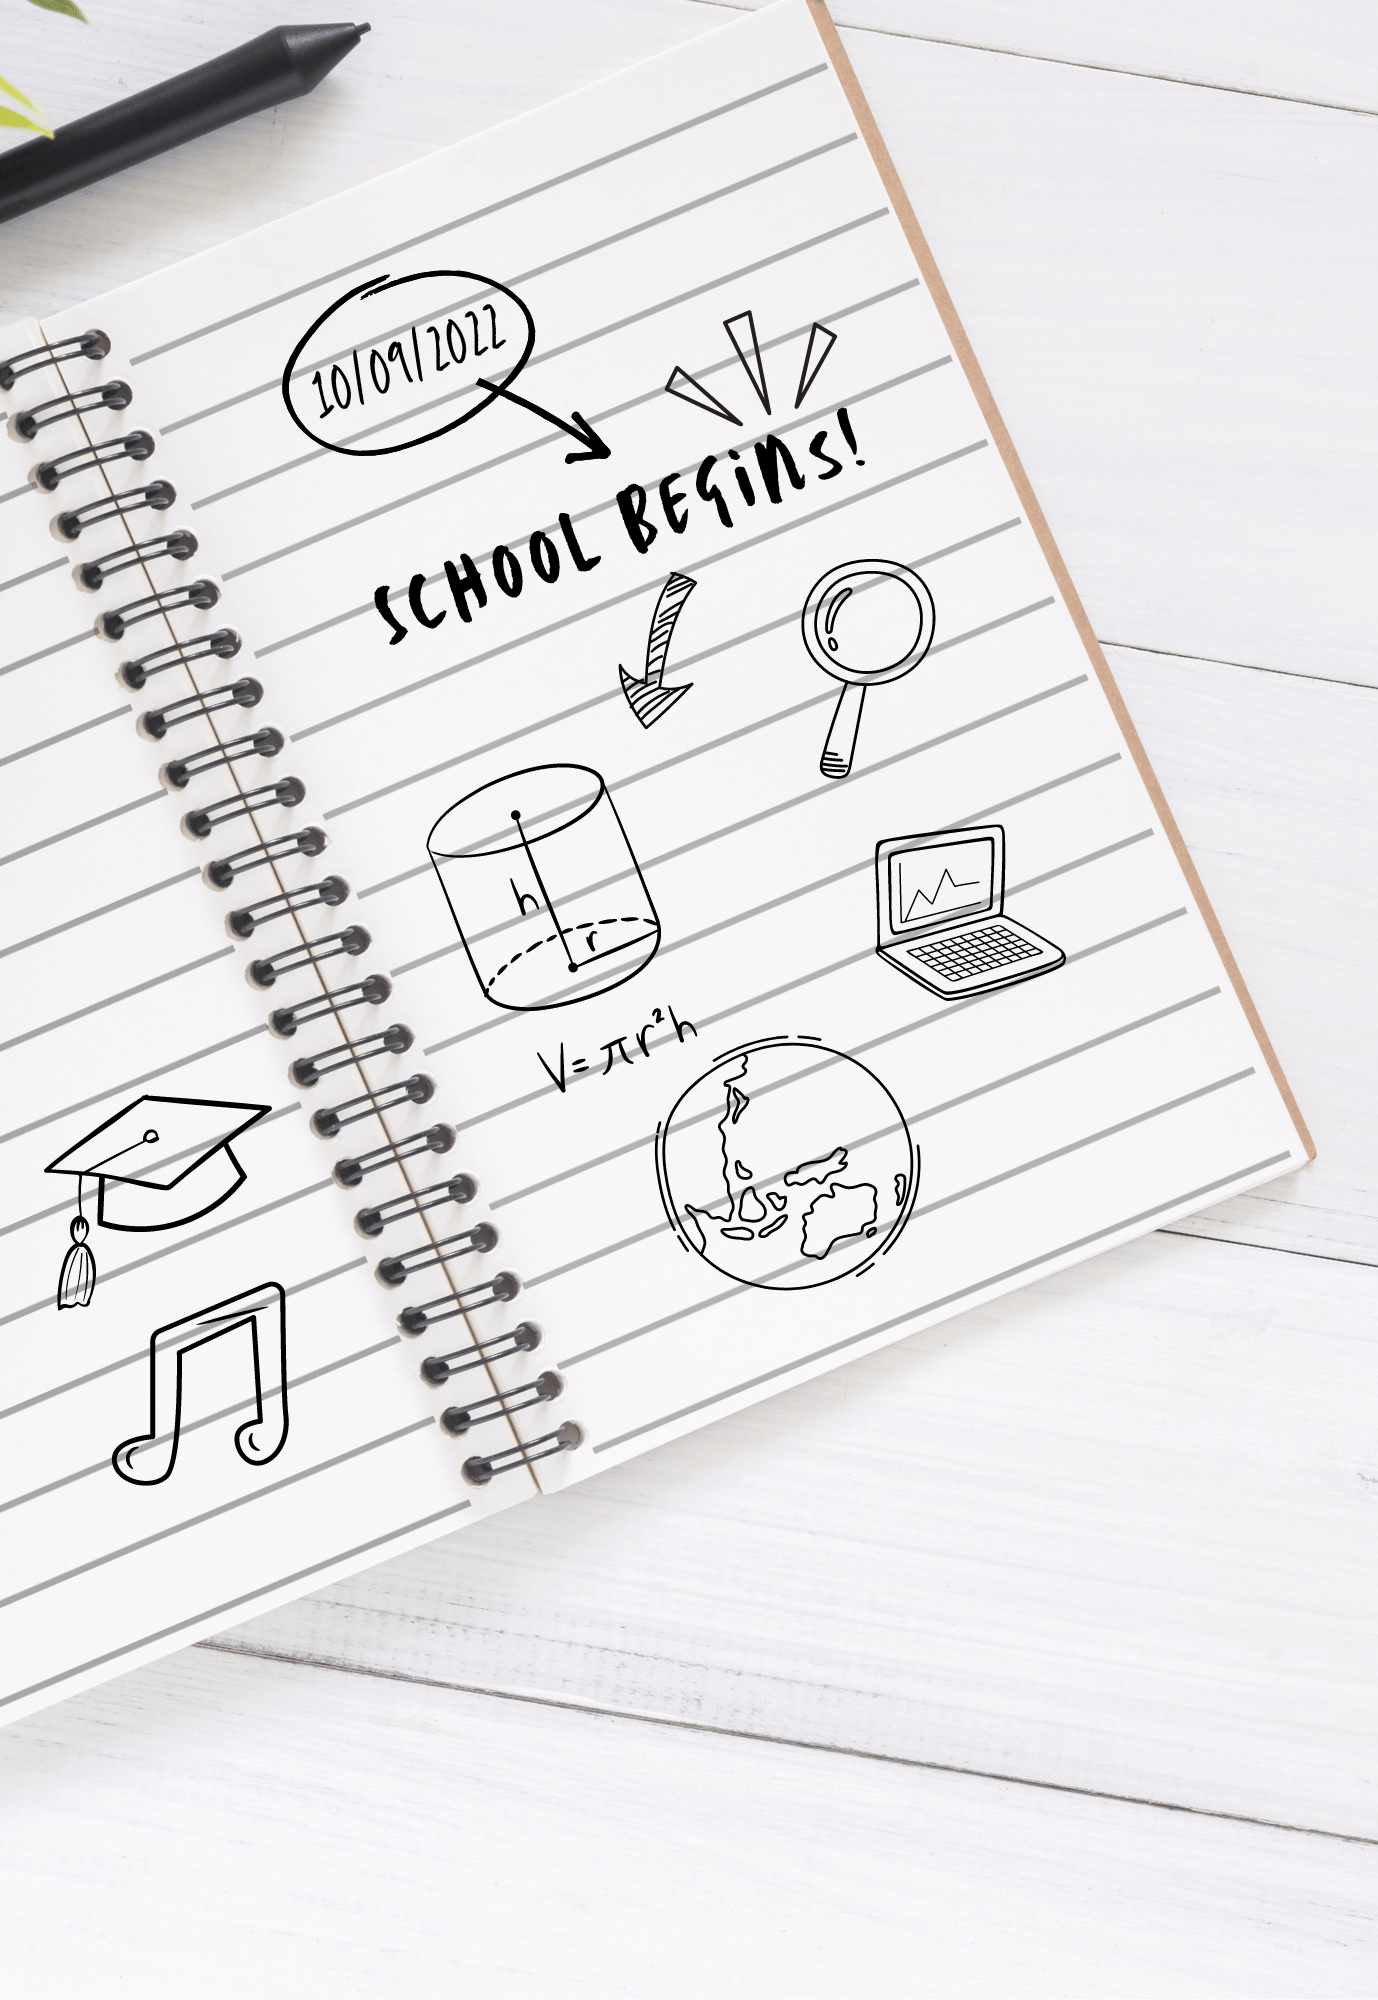 10/09/2022
SCHOOL BEGins!
h
r
V = πr²h